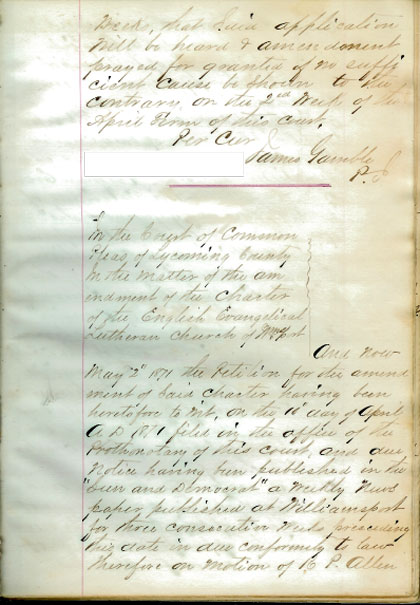 Weeks, that Said application
will be heard & amendment
prayed for granted if no suffi
cient cause be shown to the
contrary on the 2nd Week of the
April Term of this court.
Per Cur
James Gamble
P. J
In the Court of Common
Pleas of Lycoming County
In the matter of the am
endment of the Charter
of the English Evangelical
Lutheran Church of Wmsport
And now
May 2d 1871 the Petition for the amend
ment of Said Charter having been
heretofore to wit, on the 10 day of April
A D 1871 filed in the office of the
Prothonotary of this court, and due
Notice having been published in the
"Sun and Democrat" a Weekly News
paper, published at Williamsport
for three consecutive Weeks preceding
this date in due conformity to law
therefore on motion of P. Allen